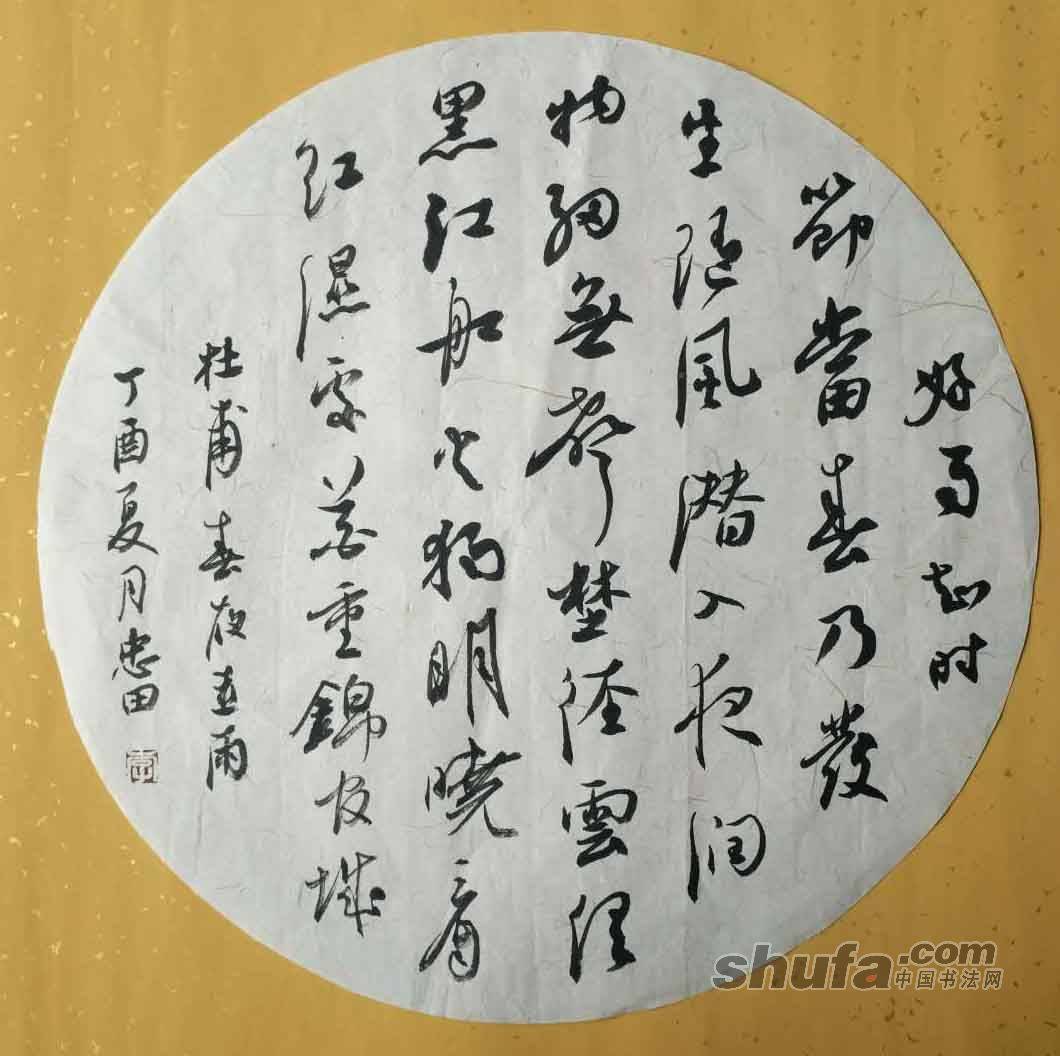 好雨知时
節當春乃發
生随風潜入夜润
物细無聲埜径雲俱
黑江船火獨明曉看
红濕處花重錦官城
杜甫春夜喜雨
丁酉夏月忠田
shufa.com
中国书法网